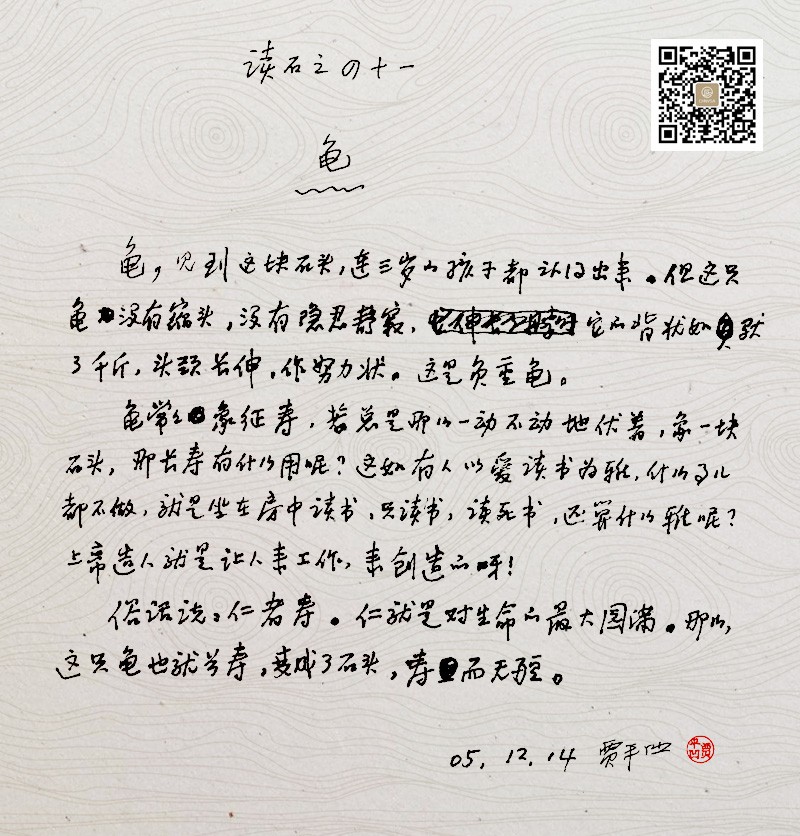 读石之四十一
龟
龟，见到这块石头，连三岁的孩子都认得出来。但这只
龟没有缩头，没有隐忍静寂，它的背状如负驮
了千斤，头颈长伸，作努力状。这是负重龟。
龟常象征寿，若总是那么一动不动地伏着，象一块
石头，那长寿有什么用呢？这如有人以爱读书为雅，什么事儿
都不做，就是坐在房中读书，只读书，读死书，还算什么雅呢？
上帝造人就是让人来工作，来创造的呀！
俗话说：仁者寿。仁就是对生命的最大圆满。那么，
这只龟也就长寿，变成了石头，寿而无疆。
05.12.14 贾平凹